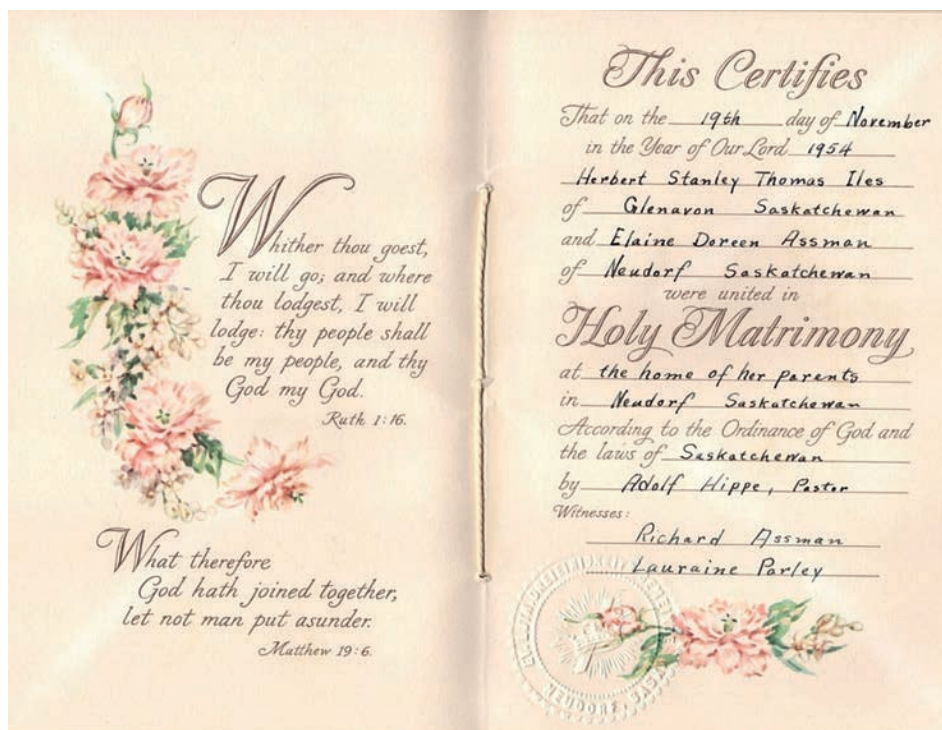 Whither thou goest,
I will go; and where
thou lodgest, I will
lodge: thy people shall
be my people, and thy
God my God.
Ruth 1:16.
What therefore
God hath joined together,
let not man put asunder.
Matthew 19:6.
This Certifies
That on the 19th day of November
in the Year of Our Lord 1954
Herbert Stanley Thomas Iles
of Glenavon Saskatchewan
and Elaine Doreen Assman
of Neudorf Saskatchewan
were united in
Holy Matrimony
at the home of her parents
in Neudorf Saskatchewan
According to the Ordinance of God and
the laws of Saskatchewan
by Adolf Hippe, Pastor
Witnesses:
Richard Assman
Lauraine Parley
NEUDORF, SASK